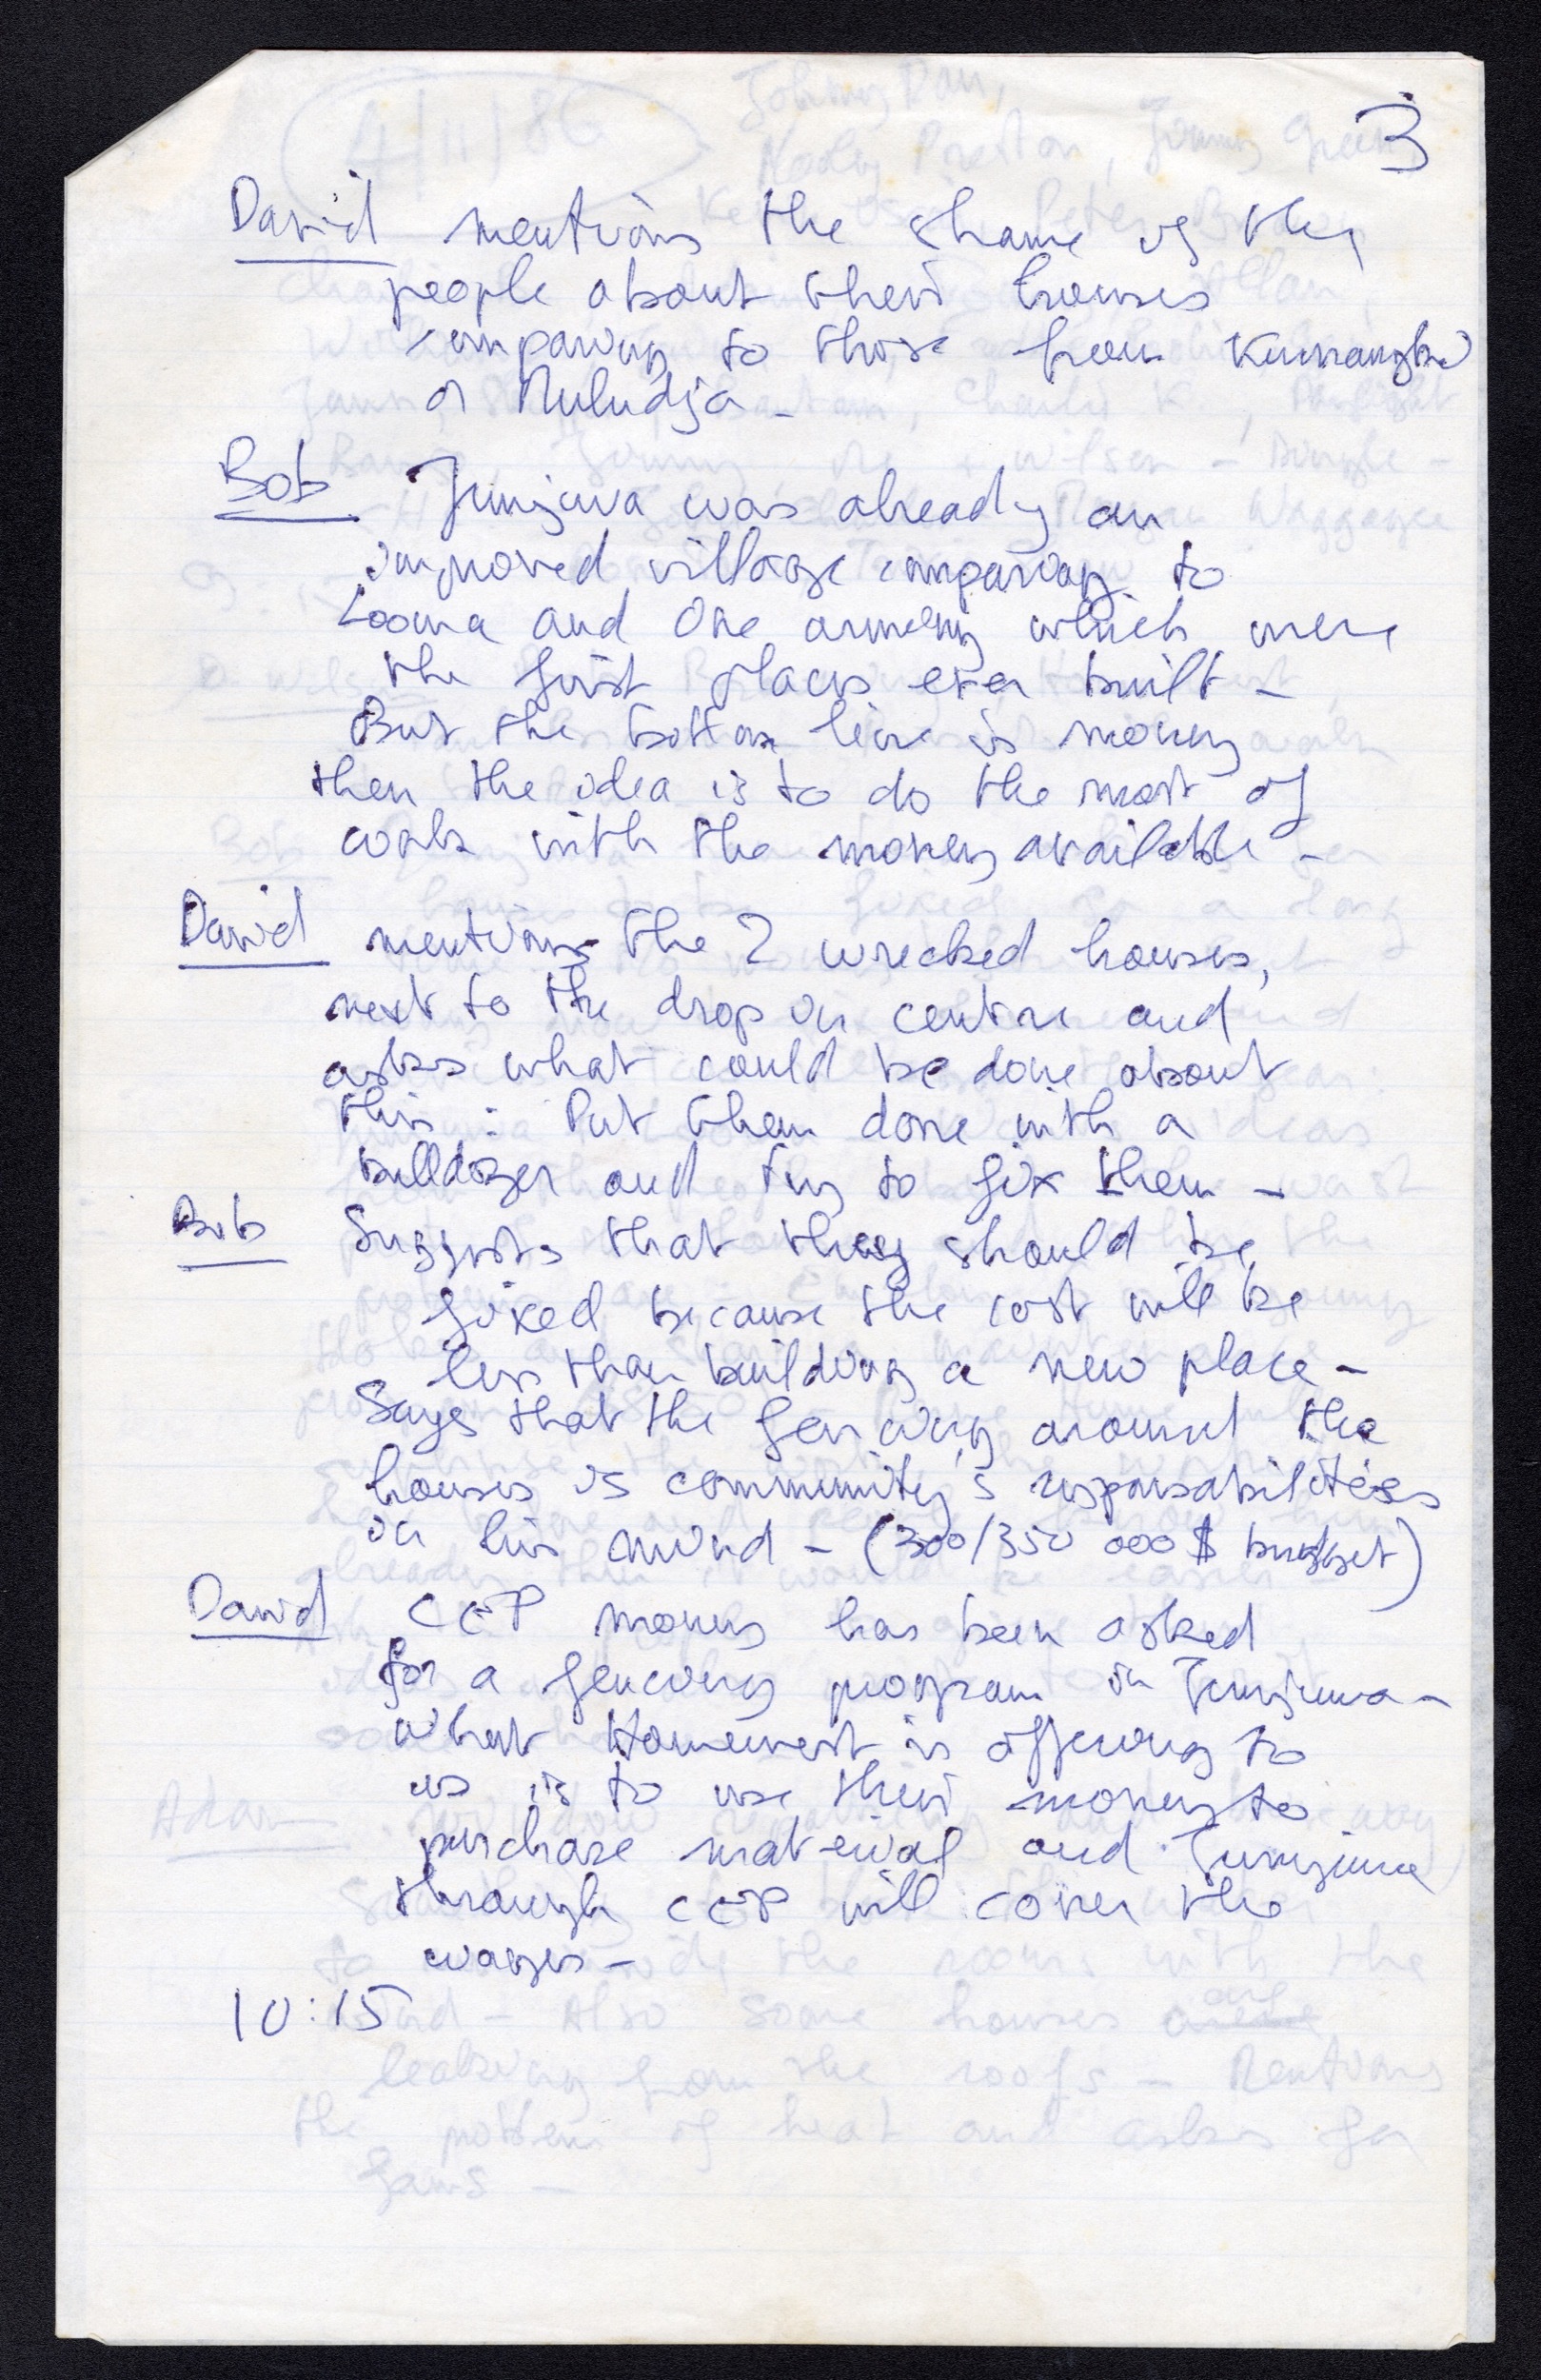 3
David mentions the shame of the
people about their houses
comparing to those from Kurnangki
or Muludja -
Bob Junjuwa was already an
improved village comparing to
Looma and One armeny which were
the first places ever built -
But the bottom line is money
then the idea is to do the most of
work with the money available -
David mentions the 2 wrecked houses,
next to the drop in centre and
asks what could be done about
this : Put them done with a
bulldozer and try to fix them -
Bob Suggests that they should be
fixed because the cost will be
less than building a new place -
Says that the fencing around the
houses is community's responsabilities
in his mind - (300/350 000 $ budget)
David CEP money has been asked
for a fencing program in Junjuwa -
what Homeswest is offering to
us is to use their money to
purchase material and Junjuwa
through CEP will cover the
wages -
10:15